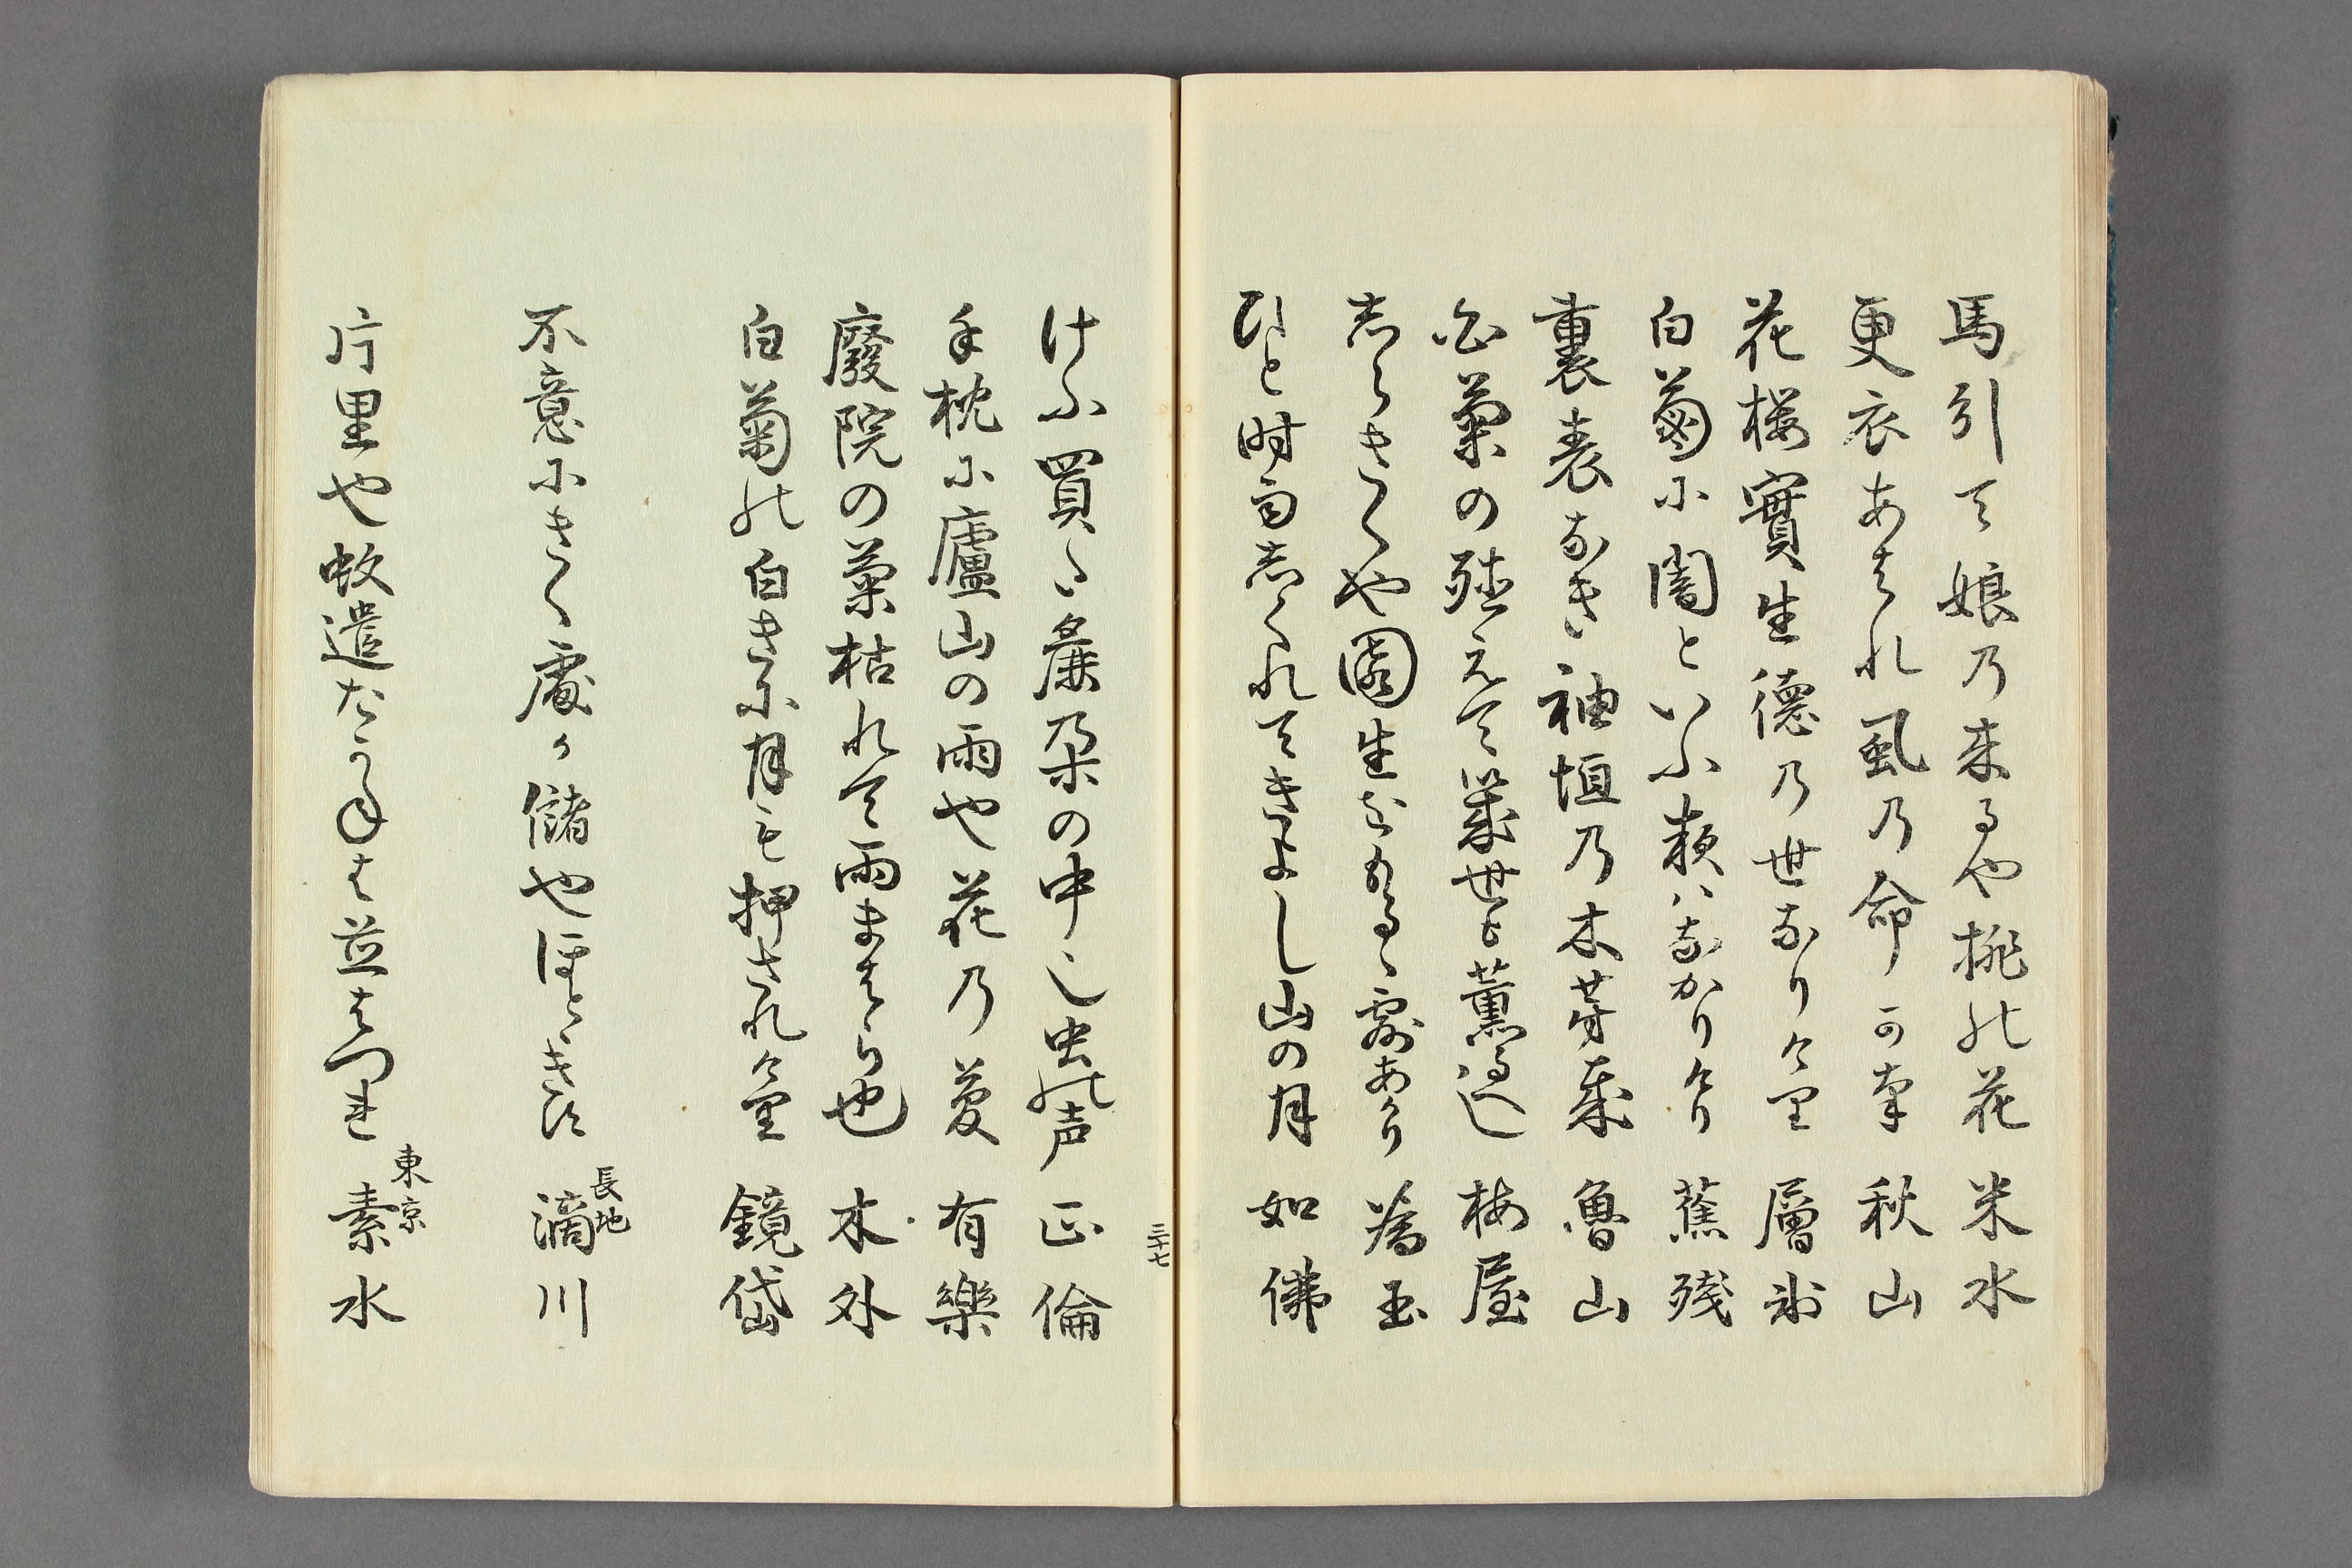 馬引て娘乃来るや桃の花 米水
更衣あはれ虱乃命可奈 秋山
花桜實生徳乃世なりけり 層
白菊に闇といふ類ハなかりけり 蕉殘
裏表なき袖垣乃木芽哉 魯山
白菊の 幾世も薫る 梅屋
志らきくや園生 露あかり 玉
ひと時雨志くれてきよし山の月 如佛
三十七
けふ買し 朶の中し虫の声 正倫
手枕に廬山の雨や花乃夢 有樂
廢院の菊枯れて雨まはら也 木外
白菊の白きに月も押されけり 鏡岱
不意にきく處か儲や保とゝきす 長地 滴川
片里や蚊遣たかねは並はつれ 東京 素水